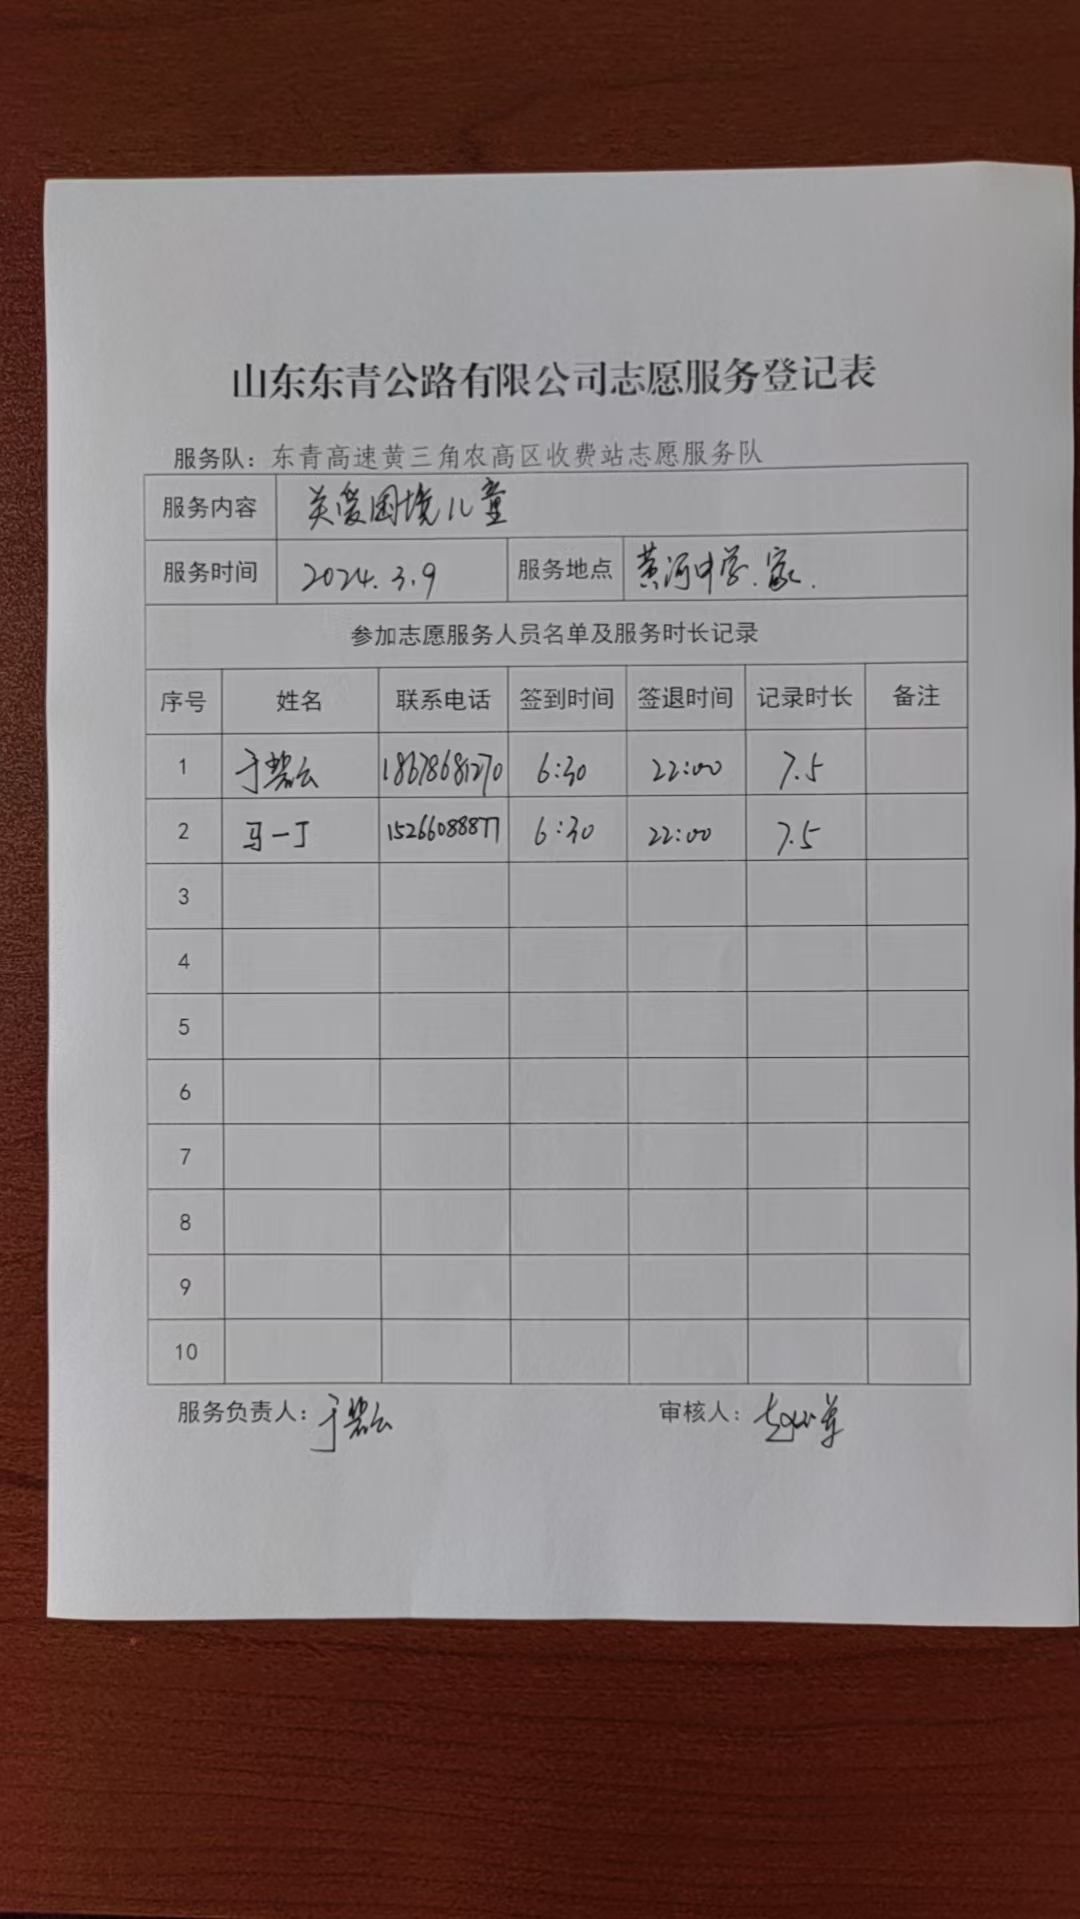 山东东青公路有限公司志愿服务登记表
服务队：东青高速黄三角农高区收费站志愿服务队
服务内容 关爱困境儿童
服务时间 2024.3.9 服务地点 黄河中学.家.
参加志愿服务人员名单及服务时长记录
序号 姓名 联系电话 签到时间 签退时间 记录时长 备注
1 于碧云 18678681270 6:30 22:00 7.5
2 马一丁 15266088877 6:30 22:00 7.5
3
4
5
6
7
8
9
10
服务负责人：于碧云 审核人：